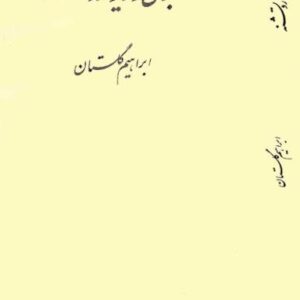 ابراهیم گلستان
و تشنه
ابراهیم گلستان